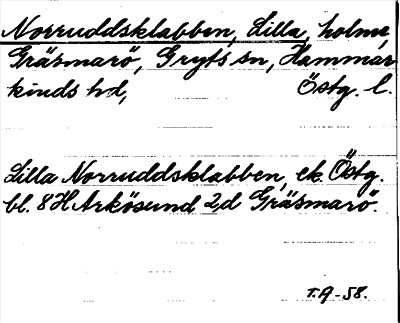 Norruddsklabben, Lilla, holme
Gräsmarö, Gryts sn, Hammar
kinds hd, Östg. l.
Lilla Norruddsklabben, ek. Östg.
bl. 8H Arkösund 2d Gräsmarö.
T.A-58.